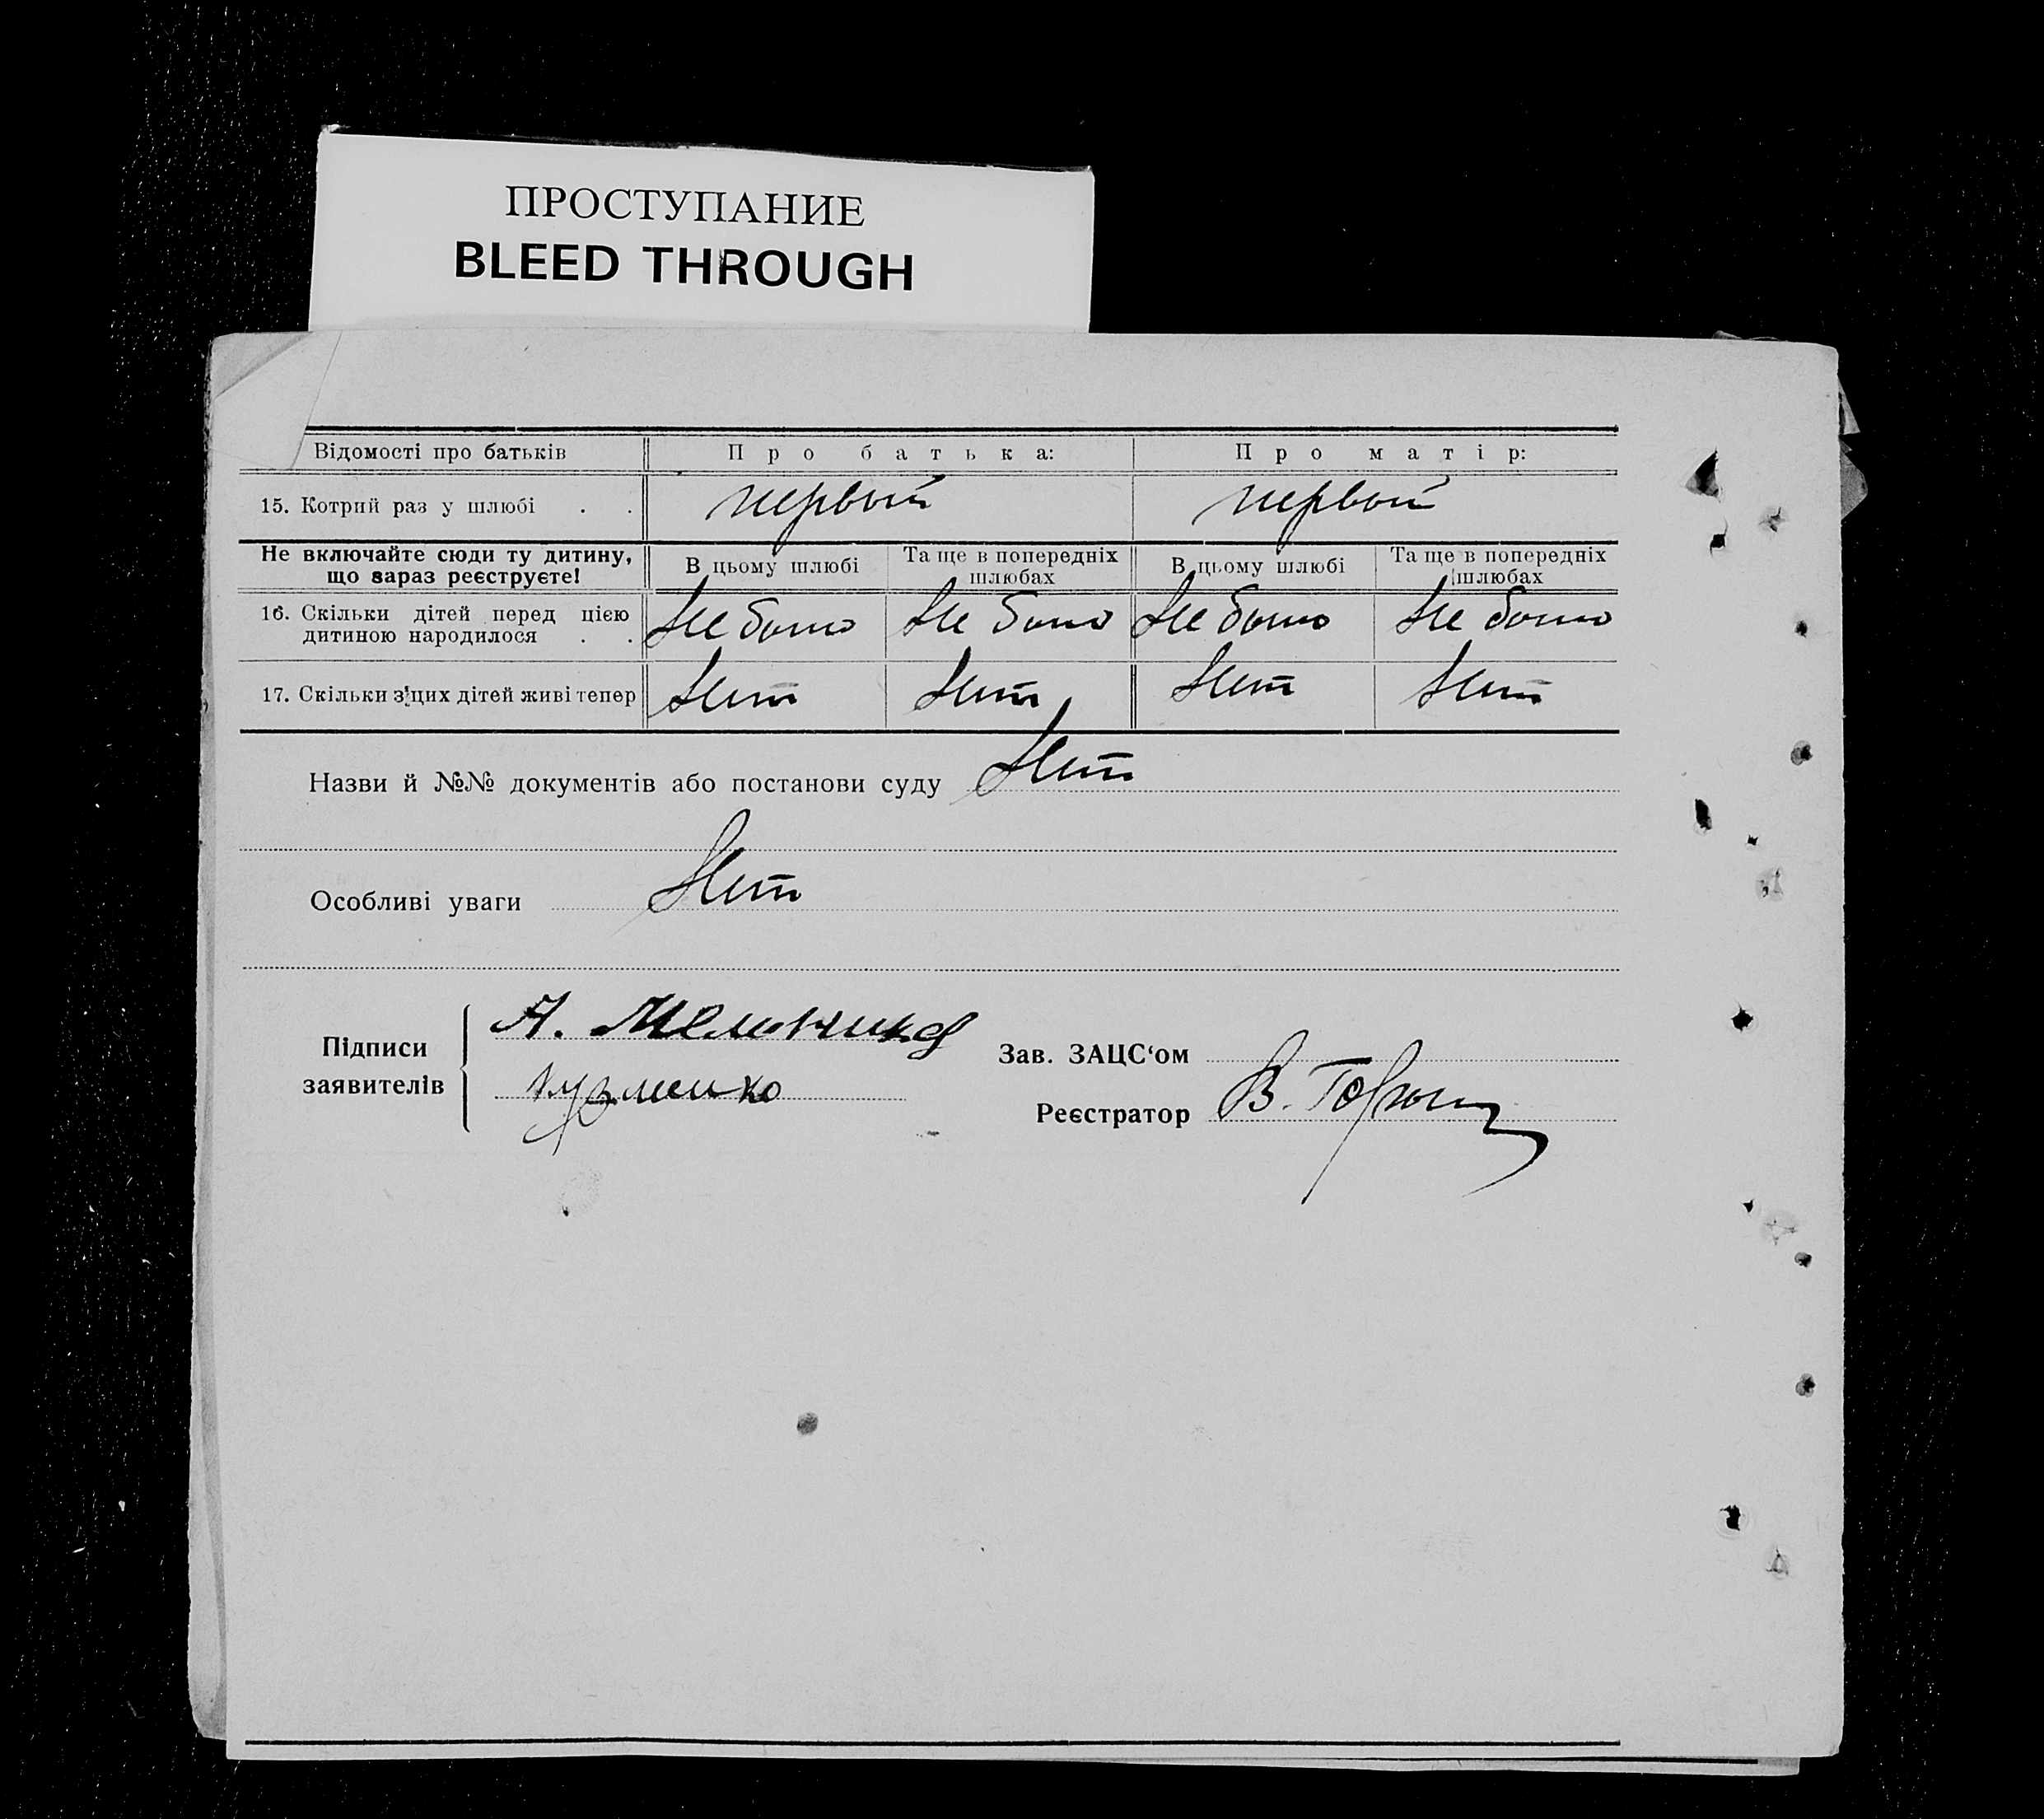 ПРОСТУПАНИЕ
BLEED THROUGH
Відомості про батьків Про батька: Про матір:
15. Котрий раз у шлюбі . . первый первый
Не включайте сюди ту дитину, що зараз реєструєте! В цьому шлюбі Та ще в попередніх шлюбах В цьому шлюбі Та ще в попередніх шлюбах
16. Скільки дітей перед цією дитиною народилося . . Не было Не было Не было Не было
17. Скільки з цих дітей живі тепер Нет Нет Нет Нет
Назви й №№ документів або постанови суду Нет
Особливі уваги Нет
Підписи заявителів
А.
Кузменко
Зав. ЗАЦС‘ом
Реєстратор В.